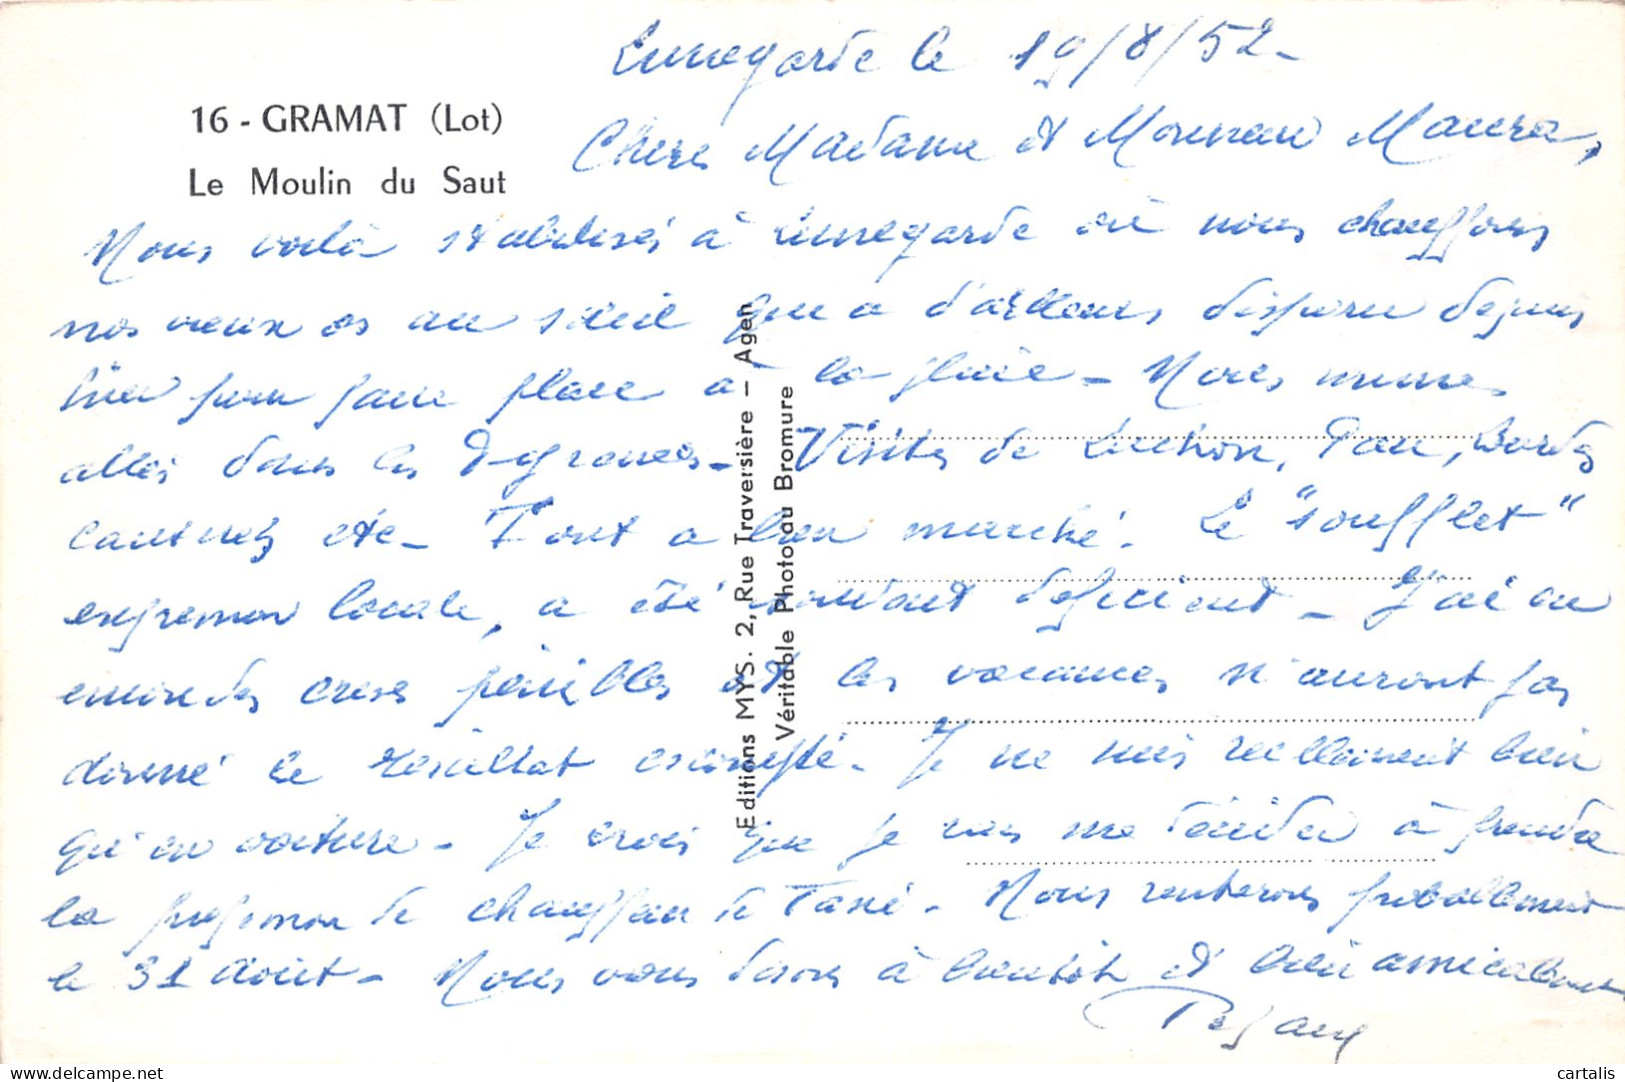 Lunegarde le 19/8/52-
16 - GRAMAT (Lot)
Le Moulin du Saut
Chers Madame et Monsieur Maurer,
Nous voilà stabilisés à Lunegarde où nous chauffons
nos vieux os au soleil qui a d'ailleurs disparu depuis
hier pour faire place à la pluie - Nous sommes
allés dans les Pyrenées - Visites de Luchon, Pau, Lourdes
Cauterets etc - Tout a bien marché. Le "soufflet"
expression locale, a été pourtant deficient - J'ai eu
encore des crises pénibles et les vacances n'auront pas
donné le résultat escompté - Je ne suis reellement bien
qu'en voiture - Je crois que je vais me décider à prendre
la profession de chauffeur de Taxi - Nous rentrerons probablement
le 31 Août - Nous vous disons à bientôt et bien amicalement
Editions MYS. 2, Rue Traversière - Agen
Véritable Photo au Bromure
cartalis
delcampe.net